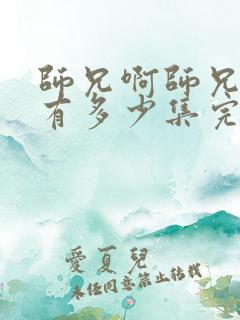 師兄啊師兄
有多少集完
愛夏兒
未经同意禁止转载